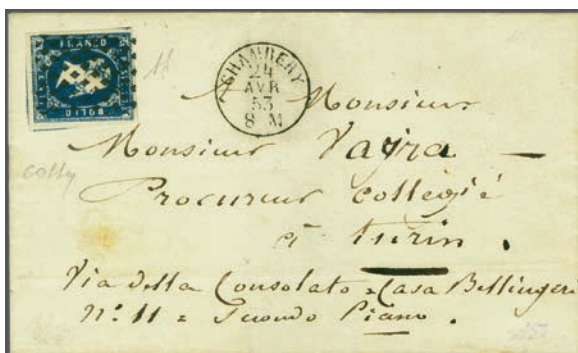 FRANCO
BOLLO
CHAMBERY
24
AVR
53
8 M
A Monsieur
Monsieur Vayra —
Procureur collégié
à turin .
Via della Consolato = Casa Bellingeri
N.º 11 = Secondo Piano .